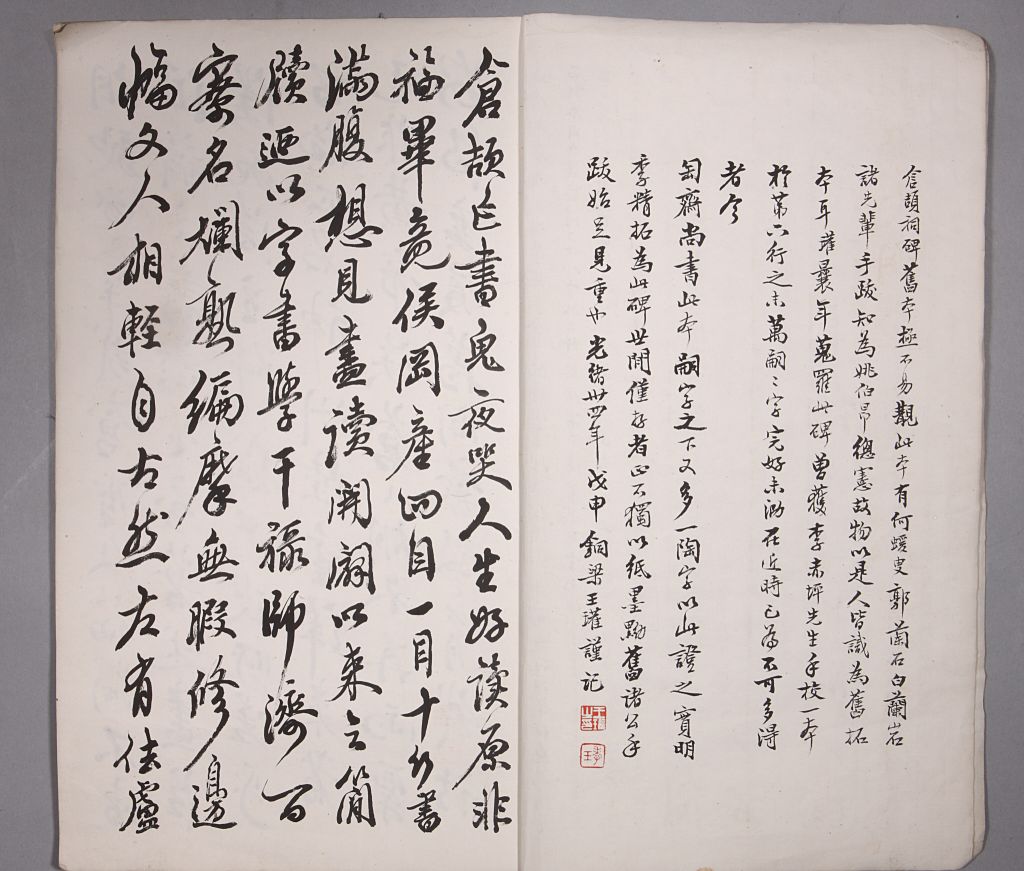 倉頡祠碑舊本極不易觀此本有何蝯叟郭蘭石白蘭岩
諸先輩手跋知為姚伯昂總憲故物以是人皆識為舊拓
本耳葆曩年蒐羅此碑曾獲李赤坪先生手校一本
於第六行之末萬嗣二字完好未泐在近時已為不可多得
者今
匋齋尚書此本嗣字之下又多一陶字以此證之實明
季精拓為此碑世間僅存者正不獨以紙墨黝舊諸公手
跋始足見重也光緒卅四年戊申銅梁王瓘謹記
倉頡亡書鬼夜哭人生好讀原非
福畢竟侯岡產四目一目十行書
滿腹想見盡讀開闢以來之簡
牘迺以字書學干祿師濟百
寮名爛熟編摩無暇修邊
幅文人相輕自古然左有佉盧